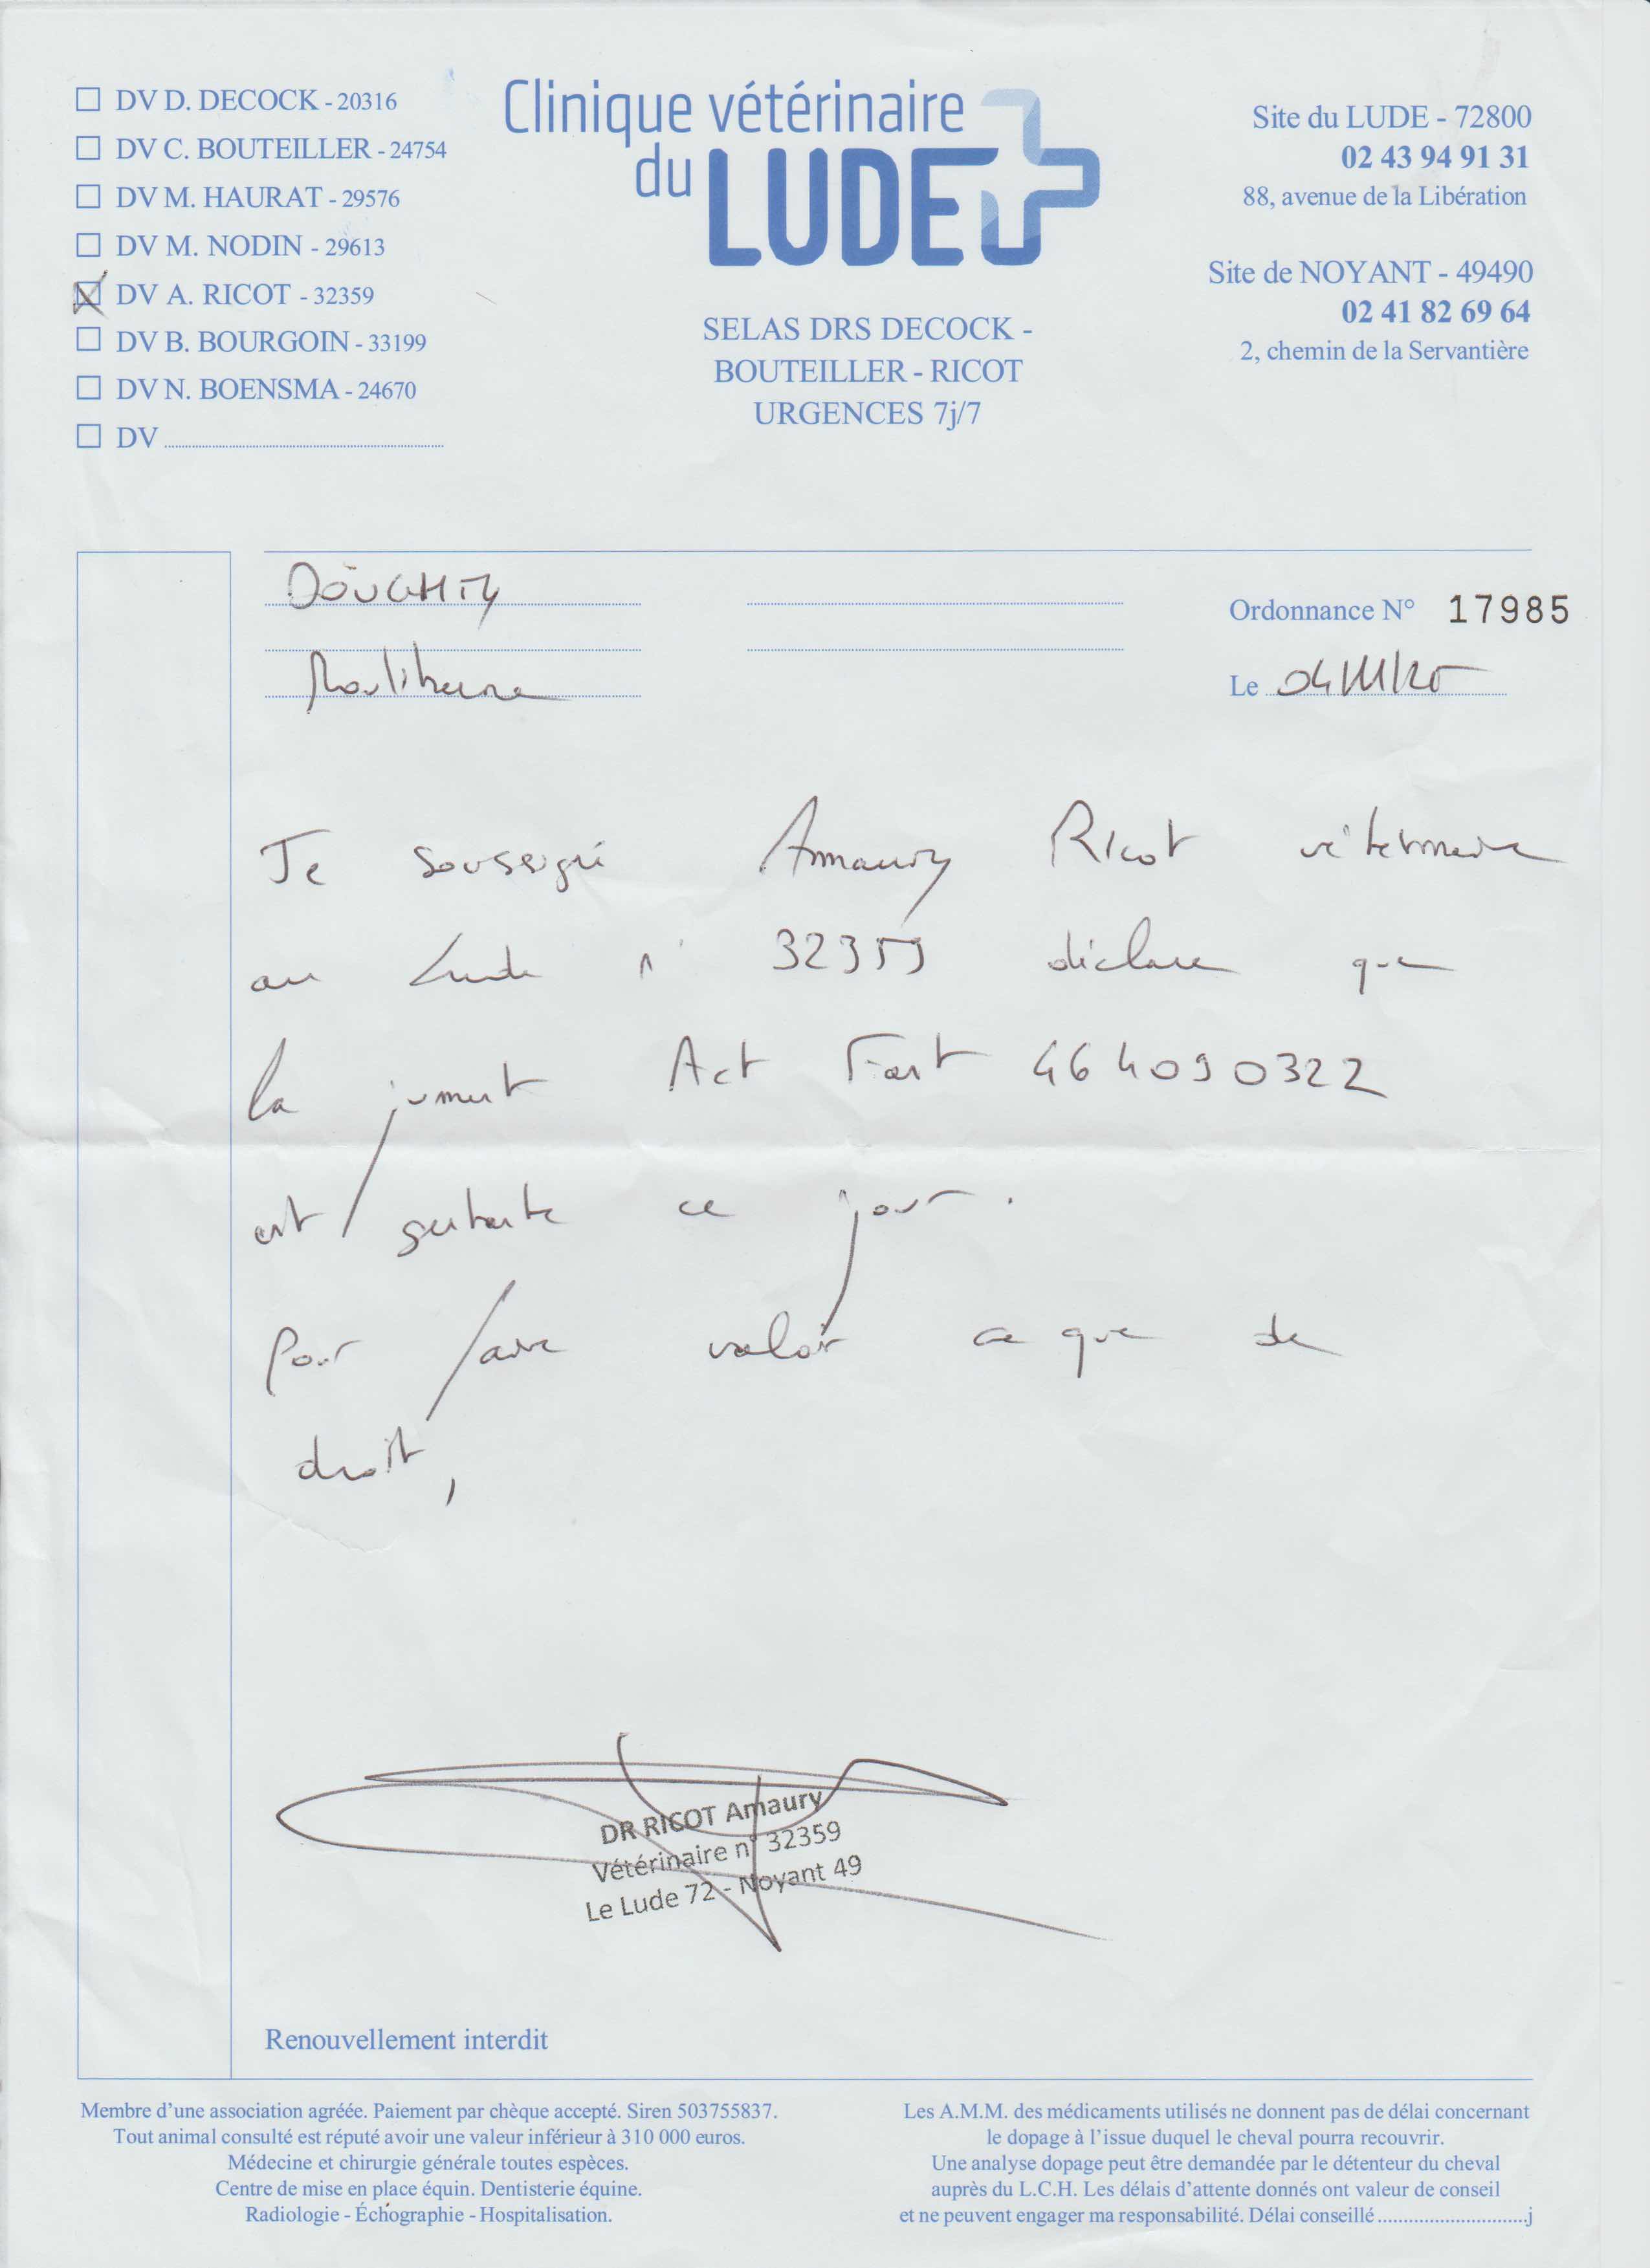 ☐ DV D. DECOCK - 20316
☐ DV C. BOUTEILLER - 24754
☐ DV M. HAURAT - 29576
☐ DV M. NODIN - 29613
☒ DV A. RICOT - 32359
☐ DV B. BOURGOIN - 33199
☐ DV N. BOENSMA - 24670
☐ DV
Clinique vétérinaire
du LUDE
SELAS DRS DECOCK -
BOUTEILLER - RICOT
URGENCES 7j/7
Site du LUDE - 72800
02 43 94 91 31
88, avenue de la Libération
Site de NOYANT - 49490
02 41 82 69 64
2, chemin de la Servantière
DOUGHTY
Mouliherne
Ordonnance N° 17985
Le 04/11/25
Je soussigné Amaury Ricot vétérinaire
au Lude n° 32359 déclare que
la jument Act Fast 464090322
est gestante ce jour.
Pour faire valoir ce que de
droit,
DR RICOT Amaury
Vétérinaire n° 32359
Le Lude 72 - Noyant 49
Renouvellement interdit
Membre d'une association agréée. Paiement par chèque accepté. Siren 503755837.
Tout animal consulté est réputé avoir une valeur inférieur à 310 000 euros.
Médecine et chirurgie générale toutes espèces.
Centre de mise en place équin. Dentisterie équine.
Radiologie - Échographie - Hospitalisation.
Les A.M.M. des médicaments utilisés ne donnent pas de délai concernant
le dopage à l'issue duquel le cheval pourra recouvrir.
Une analyse dopage peut être demandée par le détenteur du cheval
auprès du L.C.H. Les délais d'attente donnés ont valeur de conseil
et ne peuvent engager ma responsabilité. Délai conseillé ............................j